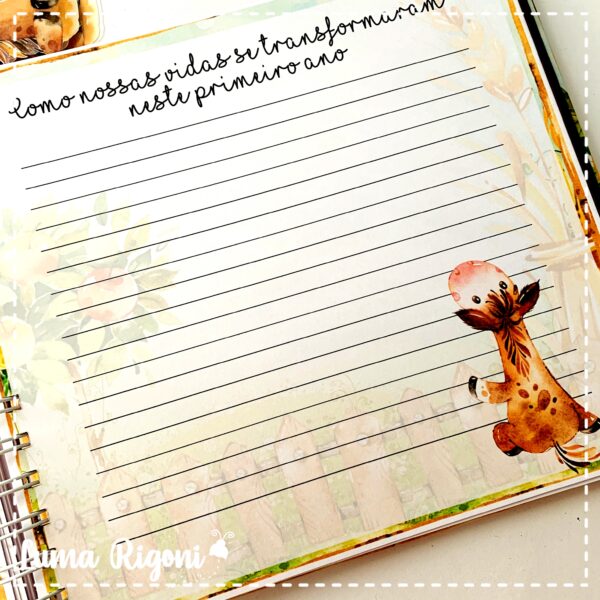 Como nossas vidas se transformaram
neste primeiro ano
Luma Rigoni